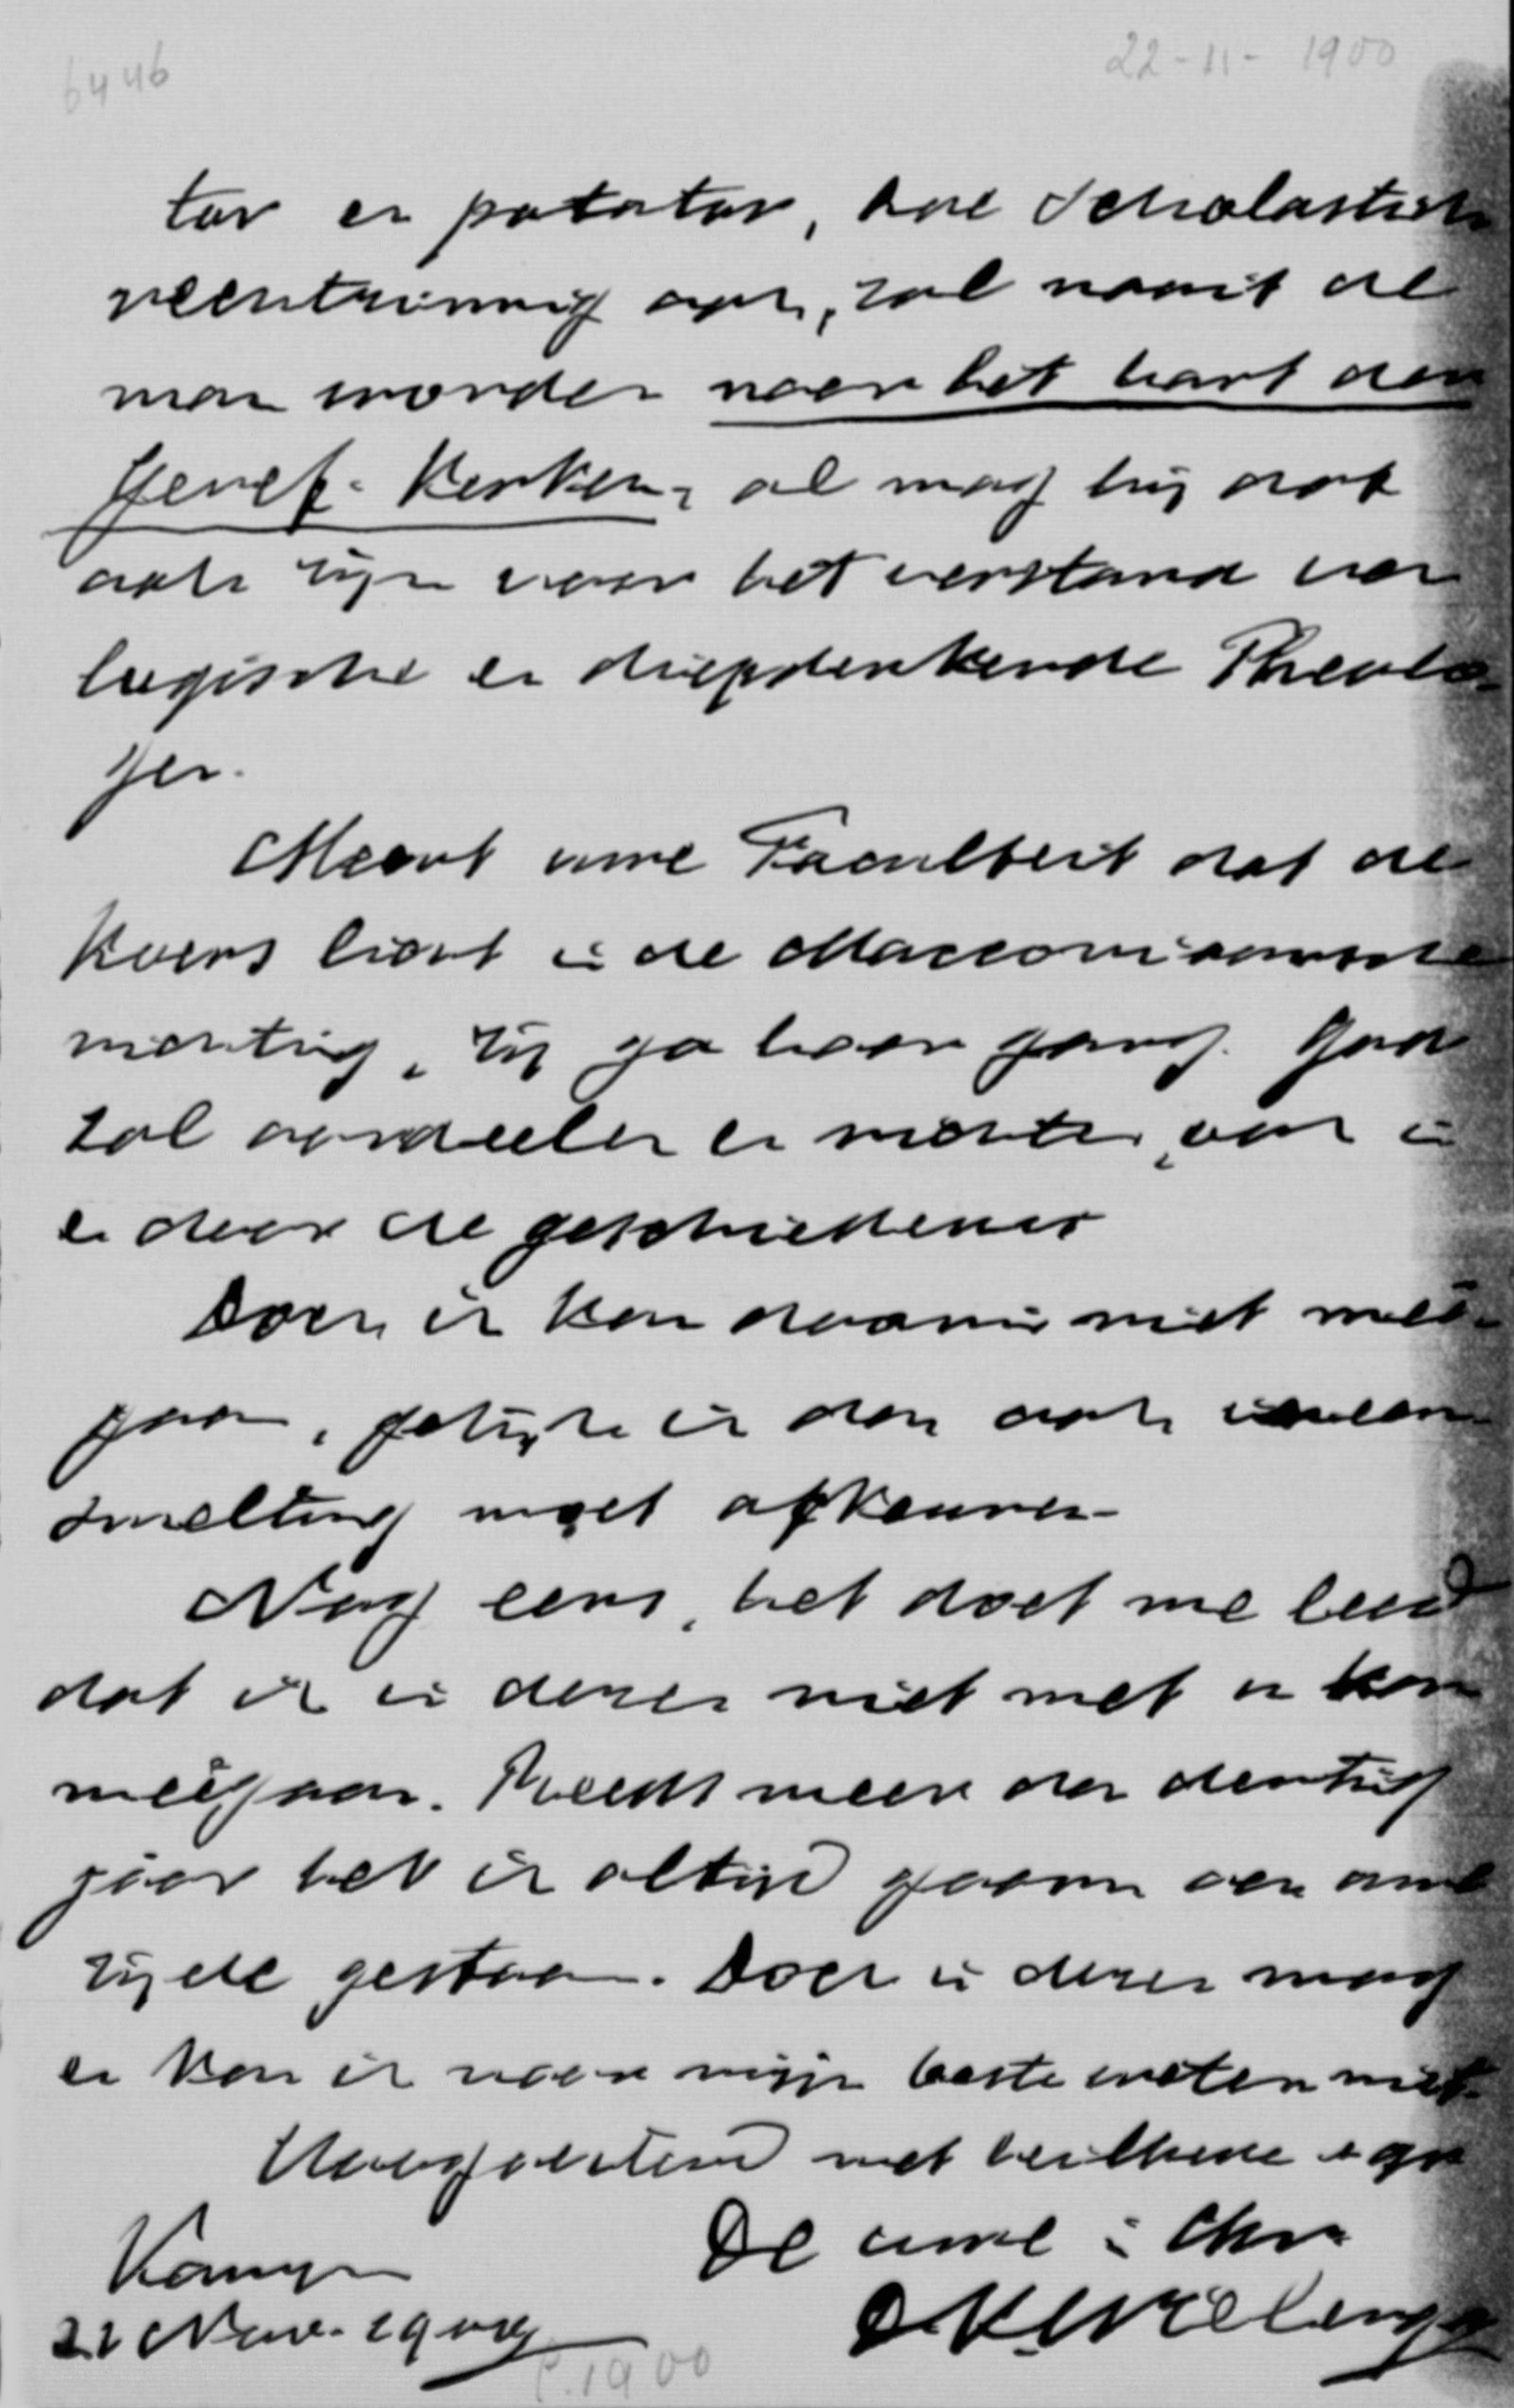 6446
22-11-1900
tor en potator, hoe Scholastisch
rechtzinnig ook, zal nooit de
man worden naar het hart der
Geref. Kerken, al mag hij dat
ook zijn naar het verstand van
logische en diepdenkende Theolo-
gen.
Meent uwe Faculteit dat de
Koers liant in de Maccovi
richting, zij ga haar gang. God
zal oordeelen en richten, ook in
en door de geschiedenis
Doch ik kan daarin niet mee-
gaan, gelijk ik dan ook
smelting moet afkeuren.
Nog eens, het doet me leed
dat ik in dezen niet met u kan
meegaan. Reeds meer dan dertig
jaar heb ik altijd gaarne aan uwe
zijde gestaan. Doch in dezen mag
en kan ik naar mijn beste weten niet.
Hoogachtend met heilbede
De uwe in Chr.
Kampen
22 Nov. 1900
D.K. Wielenga
1900